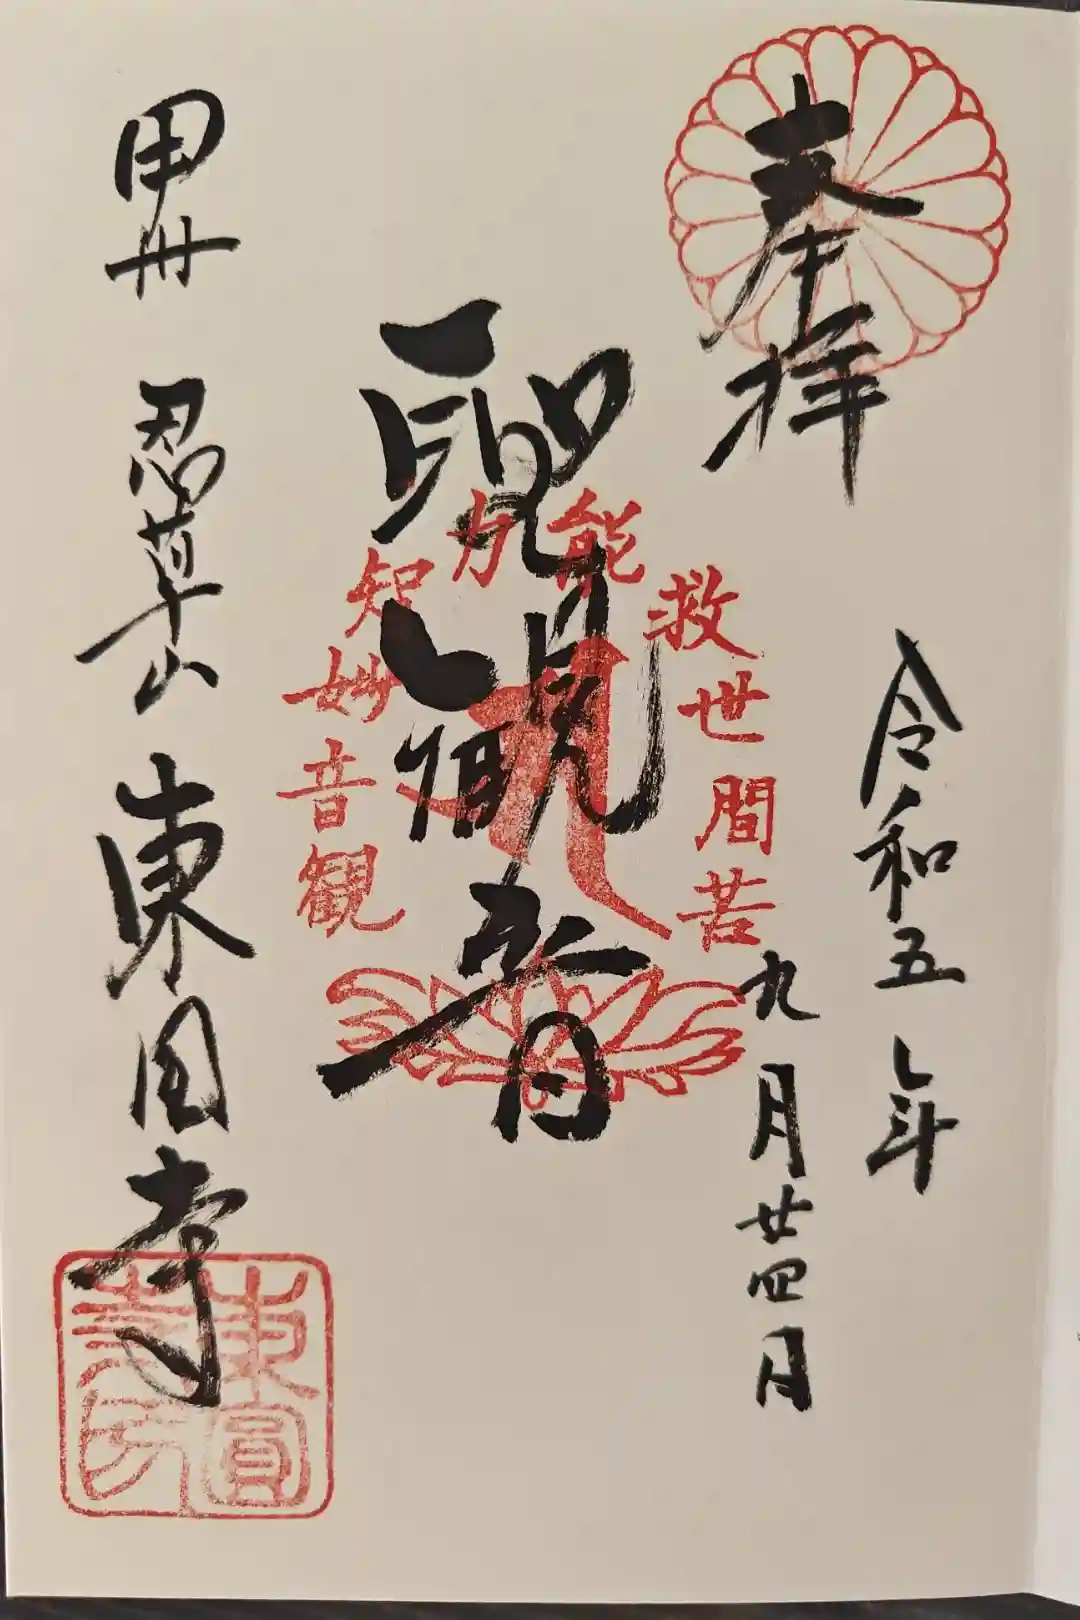 奉拝
令和五年
九月廿四日
聖観世音
観音妙智力能救世間苦
甲州
忍草山
東円寺
東圓寺印